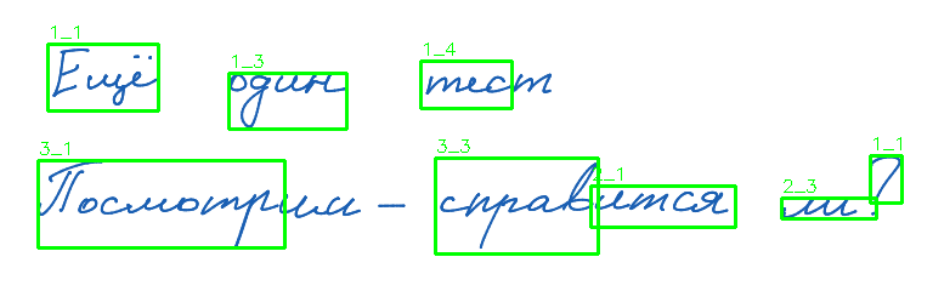 1_1 1_3 1_4
Ещё один тест
3_1 3_3 2_1 2_3 1_1
Посмотрим – справится ли?